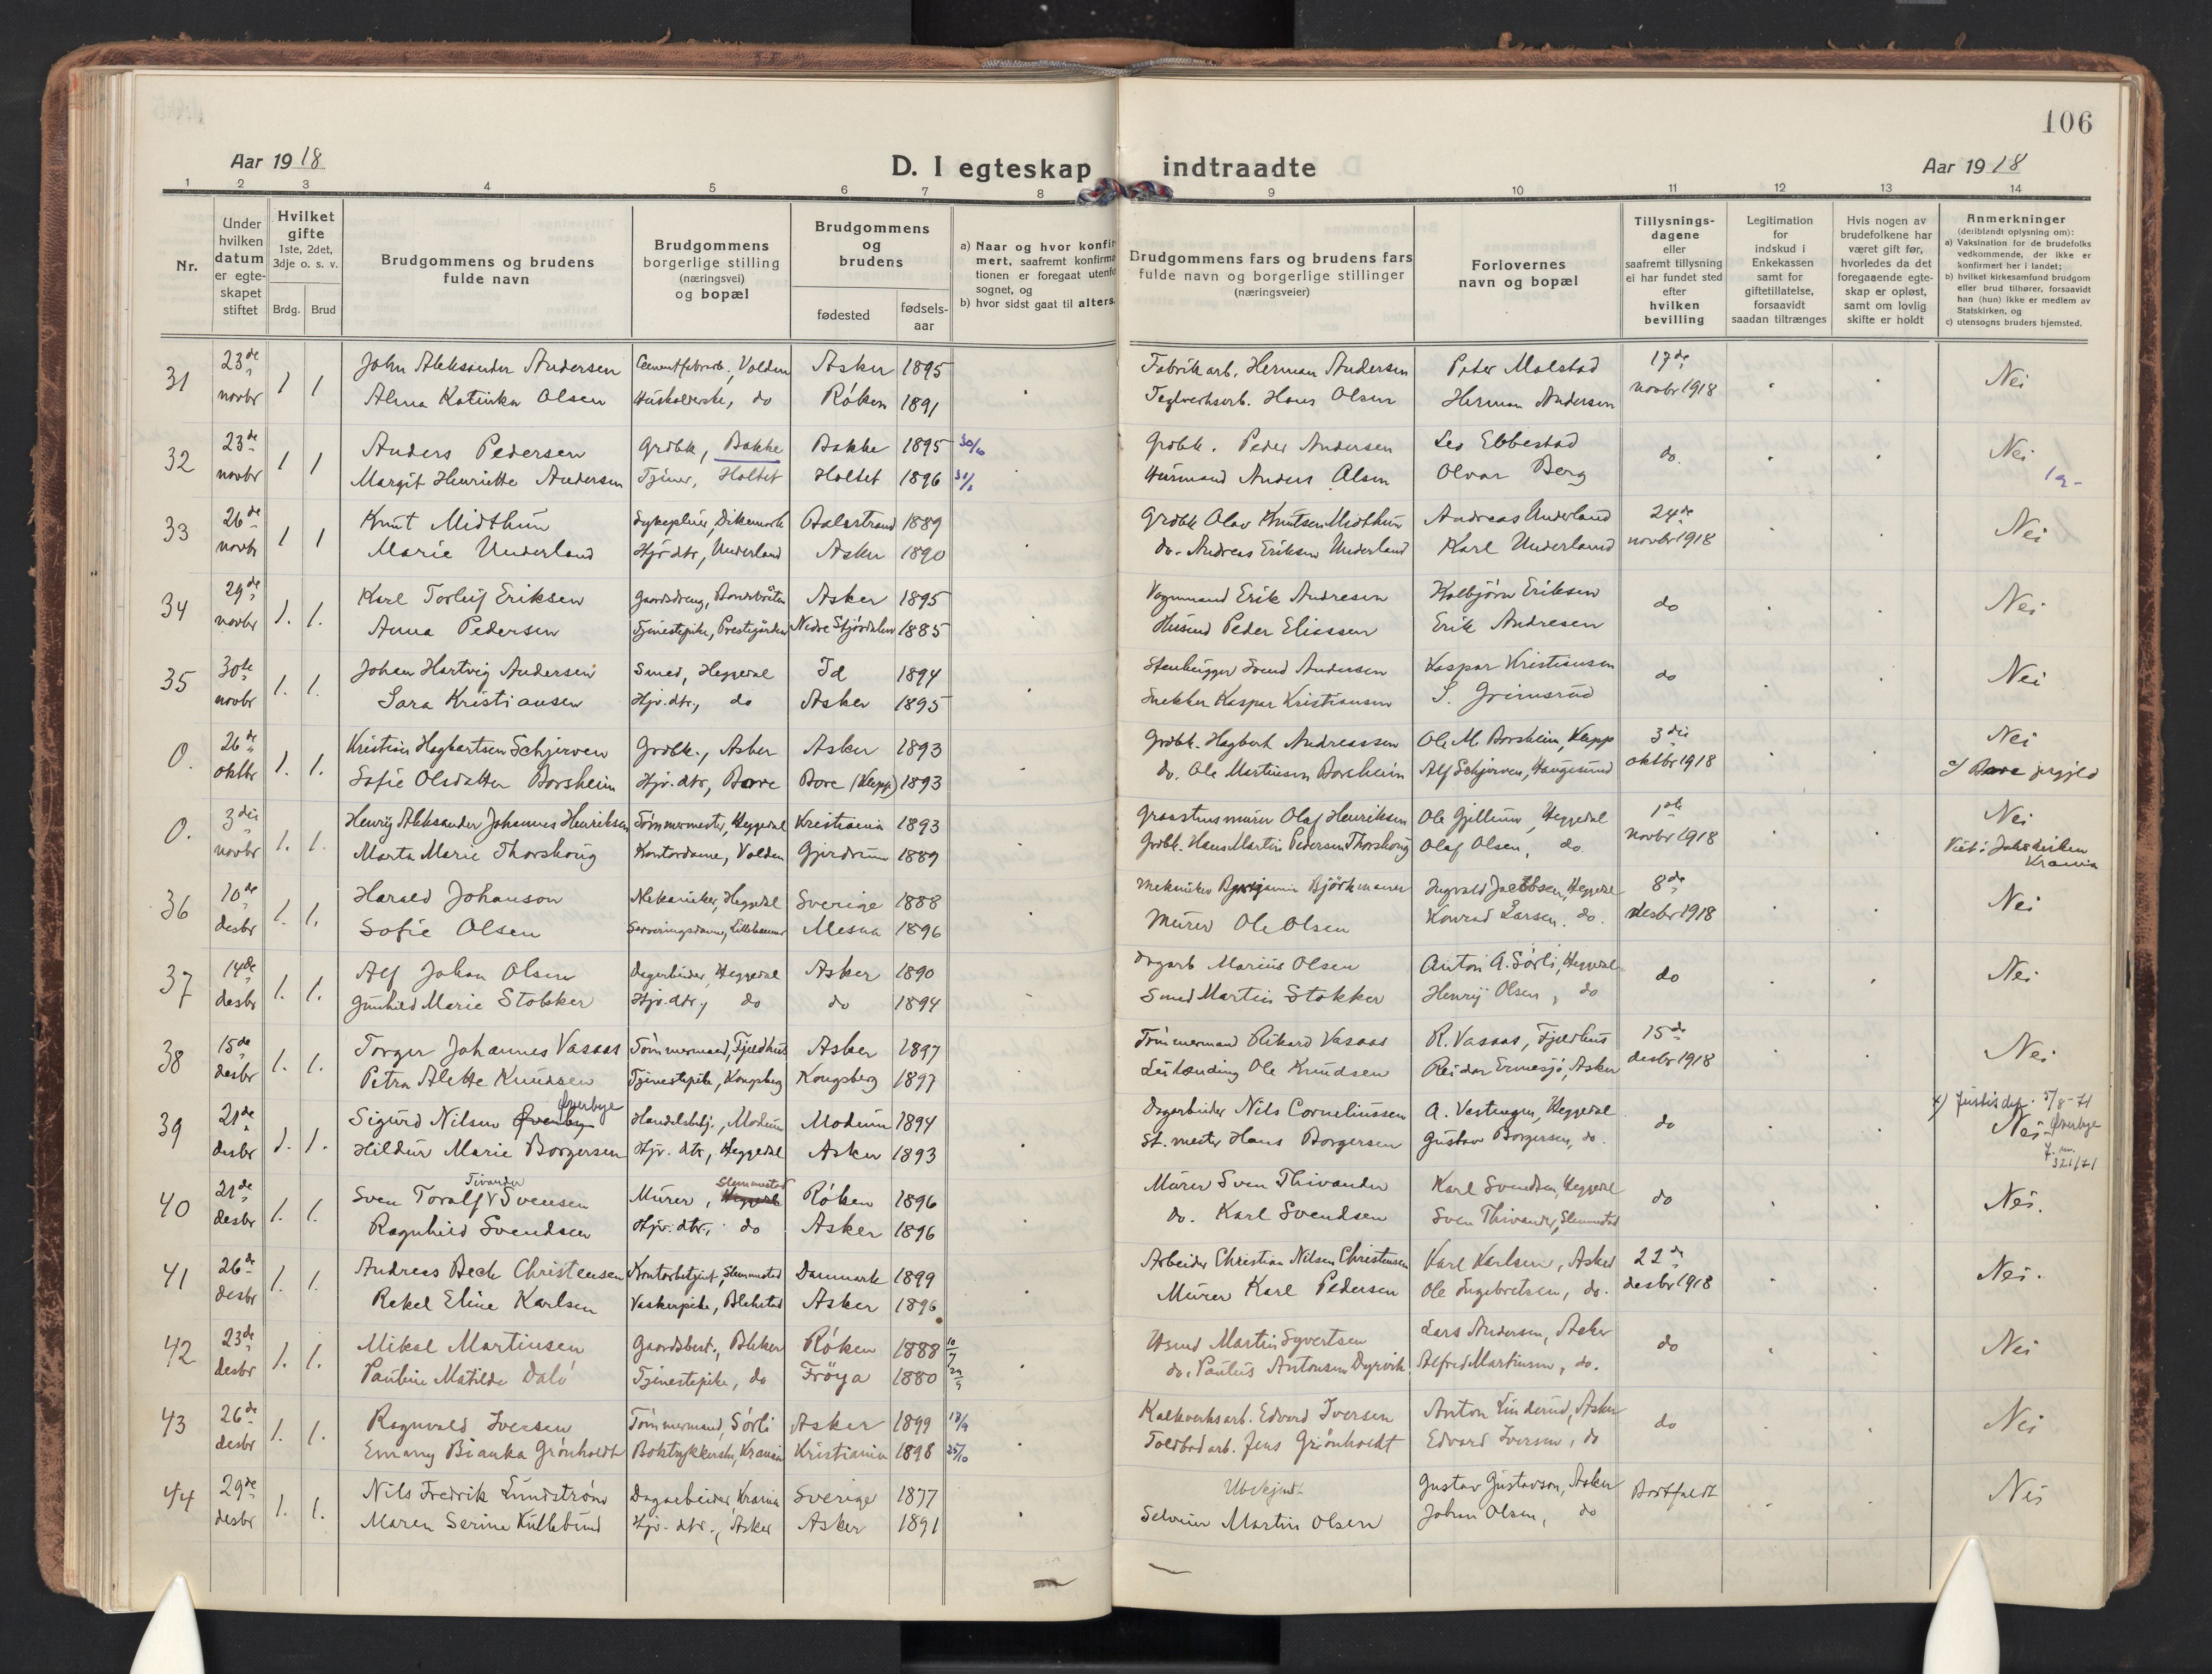 106
Aar 1918
D. I egteskap indtraadte
Aar 1918
1 2 3 4 5 6 7 8 9 10 11 12 13 14
Nr.
Under hvilken datum er egteskapet stiftet
Hvilket gifte 1ste, 2det, 3dje o. s. v.
Brdg. Brud
Brudgommens og brudens fulde navn
Brudgommens borgerlige stilling (næringsvei) og bopæl
Brudgommens og brudens
fødested
fødsels-aar
a) Naar og hvor konfirmert, saafremt konfirmationen er foregaat utenfor sognet, og
b) hvor sidst gaat til alters.
Brudgommens fars og brudens fars fulde navn og borgerlige stillinger (næringsveier)
Forlovernes navn og bopæl
Tillysnings-dagene eller saafremt tillysning ei har fundet sted efter hvilken bevilling
Legitimation for indskud i Enkekassen samt for giftetillatelse, forsaavidt saadan tiltrænges
Hvis nogen av brudefolkene har været gift før, hvorledes da det foregaaende egteskap er opløst, samt om lovlig skifte er holdt
Anmerkninger
(deriblandt oplysning om):
a) Vaksination for de brudefolks vedkommende, der ikke er konfirmert her i landet;
b) hvilket kirkesamfund brudgom eller brud tilhører, forsaavidt han (hun) ikke er medlem av Statskirken, og
c) utensogns bruders hjemsted.
31 23de 1 1 John Aleksander Andersen Cementfabrarb., Valden Asker 1895 Fabrikarb. Herman Andersen Peter Malstad 17de Nei
novbr Alma Katinka Olsen Husholderske, do Røken 1891 Teglverksarb. Hans Olsen Herman Andersen novbr 1918
32 23de 1 1 Anders Pedersen Grdbk, Bakke Bakke 1895 30/6 Grdbk. Peder Andersen Leo Ebbestad do. Nei
novbr Margit Henriette Andersen Tjener, Holtet Holtet 1896 Husmand Anders Olsen Olvar Berg
33 26de 1 1 Knut Midthun Sykepleier, Dikemark Balestrand 1889 Grdbk Olav Knutsen Midthun Andreas Underland 24de Nei
novbr Marie Underland Hjv. dtr, Underland Asker 1890 do. Andreas Eriksen Underland Karl Underland novbr 1918
34 29de 1. 1. Karl Torleif Eriksen Gaardsdreng, Asker 1895 Vognmand Erik Andresen Kolbjørn Eriksen do Nei
novbr Anna Pedersen Tjenestepike, Prestegården Nedre Stjørdalen 1885 Husmd Peder Eliassen Erik Andresen
35 30te 1. 1. Johan Hartvig Andersen Smed, Heggedal Id 1894 Stenhugger Svend Andersen Kaspar Kristiansen do Nei
novbr Sara Kristiansen Hjv. dtr., do Asker 1895 Snekker Kaspar Kristiansen S. Grimsrud
0. 26de 1. 1. Kristian Hagbartsen Schjerven Grdbk., Asker Asker 1893 Grdbk. Hagbart Andreassen Ole M. Borsheim, Klepp 3die Nei
oktbr Sofie Olsdatter Borsheim Hjv. dtr, Bore Bore (Klepp) 1893 do. Ole Martinsen Borsheim Alf Schjerven, Haugesund oktbr 1918 c) Bore prgjeld
0. 3die 1. 1. Henry Aleksander Johannes Henriksen Tømmermester, Heggedal Kristiania 1893 Graastensmurer Olaf Henriksen Ole Gjellum, Heggedal 1ste Nei
novbr Marta Marie Thorshoug Kontordame, Valden Gjerdrum 1889 Grdbk. Hans Martin Pedersen Thorshoug Olaf Olsen, do. novbr 1918 Viet i Jakobkirken Krania
36 10de 1. 1. Harald Johanson Mekaniker, Heggedal Sverige 1888 Mekaniker Benjamin Björkmann Ingvald Jacobsen, Heggedal 8de Nei
desbr Sofie Olsen Serveringsdame, Lillehammer Mesna 1896 Murer Ole Olsen Konrad Larsen, do. desbr 1918
37 14de 1. 1. Alf Johan Olsen Dagarbeider, Heggedal Asker 1890 Dagarb Marius Olsen Anton A. Sørli, Heggedal do Nei
desbr Gunhild Marie Stokker Hjv. dtr, do do 1894 Smed Martin Stokker Henry Olsen, do
38 15de 1. 1. Torger Johannes Vasaas Tømmermand, Fjeldhus Asker 1897 Tømmermand Rikard Vasaas R. Vasaas, Fjeldhus 15de Nei
desbr Petra Alette Knudsen Tjenestepike, Kongsberg Kongsberg 1897 Leilænding Ole Knudsen Reidar Ermesjø, Asker desbr 1918
39 21de 1. 1. Sigurd Nilsen Øverbye Handelsbetj., Modum Modum 1894 Dagarbeider Nils Corneliussen A. Vestengen, Heggedal do x) Justisdep. 5/8-71 Nei Øverbye
desbr Hildur Marie Borgersen Hjv. dtr, Heggedal Asker 1893 St. mester Hans Borgersen Gustav Borgersen, do. J. nr. 321/71
40 21de 1. 1. Sven Toralf Tivander Svensen Murer, Slemmestad Heggedal Røken 1896 Murer Sven Thivander Karl Svendsen, Heggedal do Nei.
desbr Ragnhild Svendsen Hjv. dtr., do Asker 1896 do. Karl Svendsen Sven Thivander, Slemmestad
41 26de 1. 1. Andreas Bech Christensen Kontorbetjent, Slemmestad Danmark 1899 Arbeider Christian Nilsen Christensen Karl Karlsen, Asker 22de Nei.
desbr Rakel Eline Karlsen Vaskerpike, Blakstad Asker 1896 Murer Karl Pedersen Ole Ingebretsen, do. desbr 1918
42 23de 1. 1. Mikal Martinsen Gaardsbest., Bleker Røken 1888 10/7 Hsmd Martin Syvertsen Lars Andersen, Asker do Nei
desbr Pauline Matilde Dalø Tjenestepike, do Frøya 1880 29/9 do. Paulus Antonsen Dyrvik Alfred Martinsen, do.
43 26de 1. 1. Ragnvald Iversen Tømmermand, Sørli Asker 1899 Kalkverksarb. Edvard Iversen Anton Linderud, Asker do Nei
desbr Emmy Bianka Grønholdt Boktrykkerske, Krania Kristiania 1898 25/10 Toldbodarb. Jens Grønholdt Edvard Iversen, do
44 29de 1. 1. Nils Fredrik Lundstrøm Dagarbeider, Krania Sverige 1877 Ubekjendt Gustav Gustavson, Asker Bortfaldt Nei
desbr Maren Serine Kullebund Hjv. dtr., Asker Asker 1891 Selveier Martin Olsen Johan Olsen, do